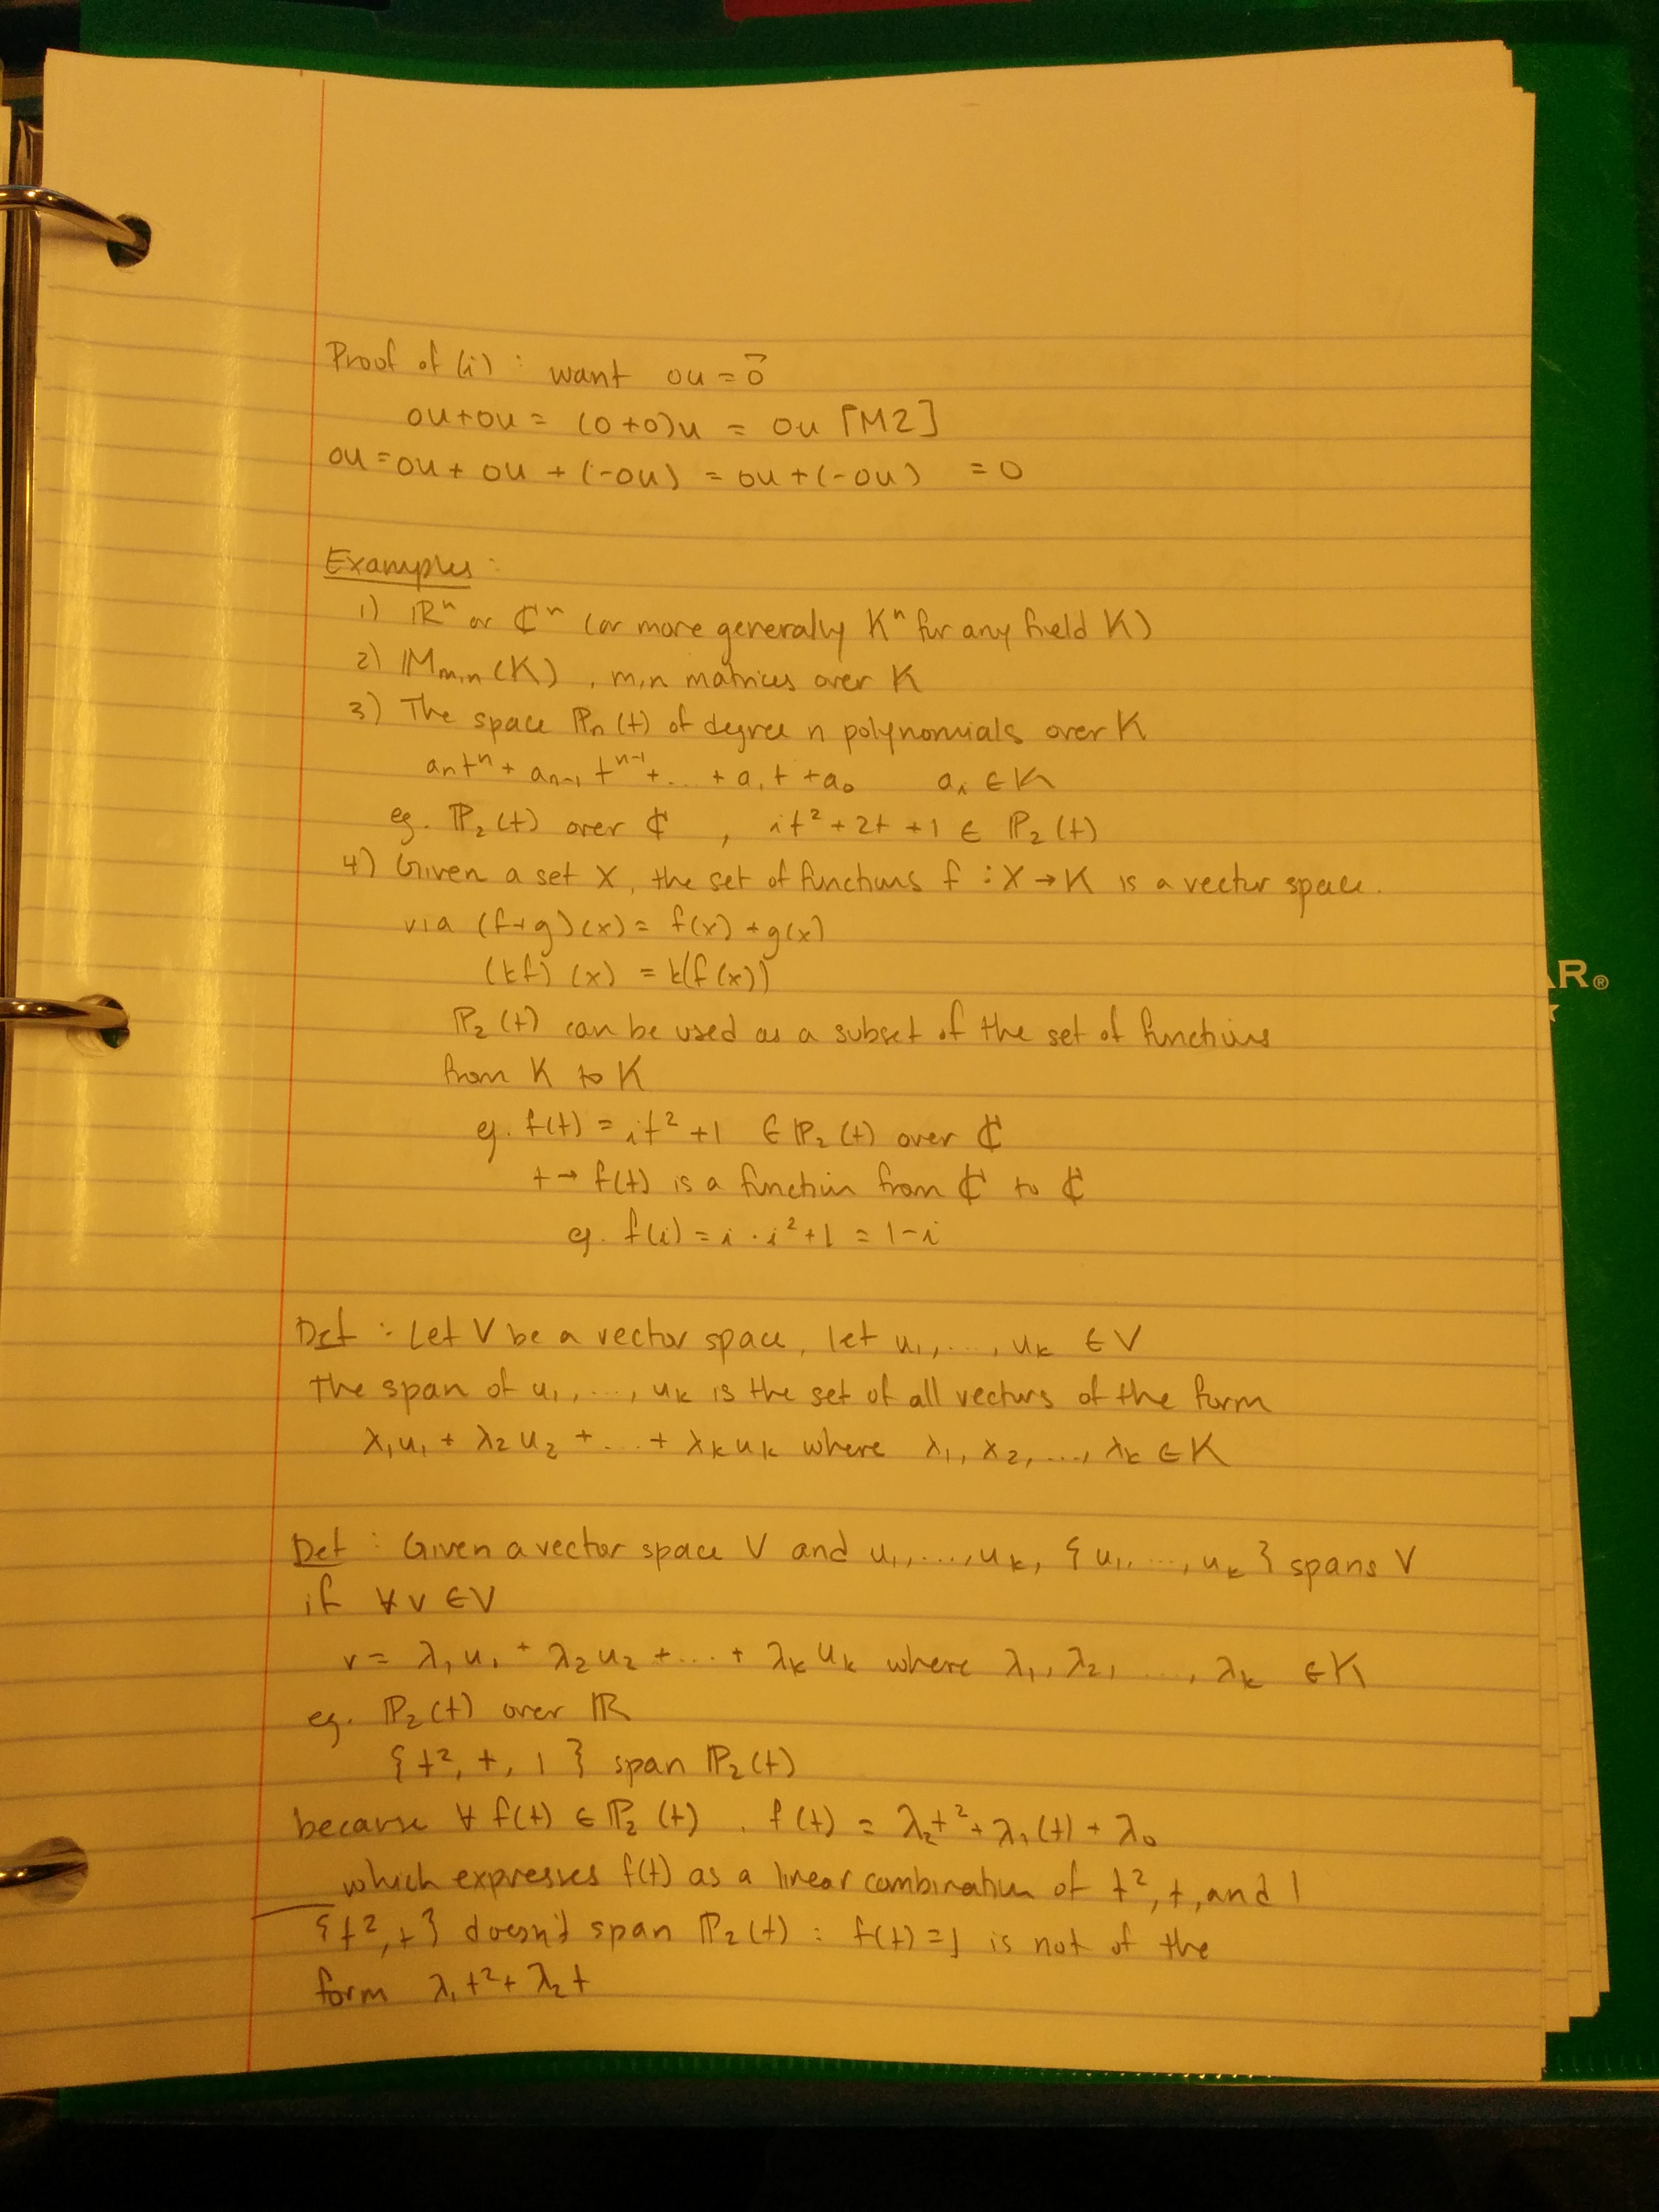 Proof of (i) : want 0u = 0⃗
0u+0u = (0+0)u = 0u [M2]
0u = 0u + 0u + (-0u) = 0u + (-0u) = 0
Examples :
1) ℝⁿ or ℂⁿ (or more generally Kⁿ for any field K)
2) 𝕄m,n (K) , m,n matrices over K
3) The space ℙn (t) of degree n polynomials over K
aₙtⁿ + aₙ₋₁ tⁿ⁻¹ + ... + a₁t + a₀ aᵢ ∈ K
eg. ℙ₂(t) over ℂ , it² + 2t + 1 ∈ ℙ₂(t)
4) Given a set X, the set of functions f : X → K is a vector space.
via (f+g)(x) = f(x) + g(x)
(kf)(x) = k(f(x))
ℙ₂(t) can be used as a subset of the set of functions
from K to K
eg. f(t) = it² + 1 ∈ ℙ₂(t) over ℂ
t → f(t) is a function from ℂ to ℂ
eg. f(i) = i · i² + 1 = 1 - i
Def : Let V be a vector space, let u₁, ..., uₖ ∈ V
The span of u₁, ..., uₖ is the set of all vectors of the form
λ₁u₁ + λ₂u₂ + ... + λₖuₖ where λ₁, λ₂, ..., λₖ ∈ K
Def : Given a vector space V and u₁, ..., uₖ, {u₁, ..., uₖ} spans V
if ∀ v ∈ V
v = λ₁u₁ + λ₂u₂ + ... + λₖuₖ where λ₁, λ₂, ..., λₖ ∈ K
eg. ℙ₂(t) over ℝ
{t², t, 1} span ℙ₂(t)
because ∀ f(t) ∈ ℙ₂(t) , f(t) = λ₂t² + λ₁(t) + λ₀
which expresses f(t) as a linear combination of t², t, and 1
{t², t} doesn't span ℙ₂(t) : f(t) = 1 is not of the
form λ₁t² + λ₂t
AR®